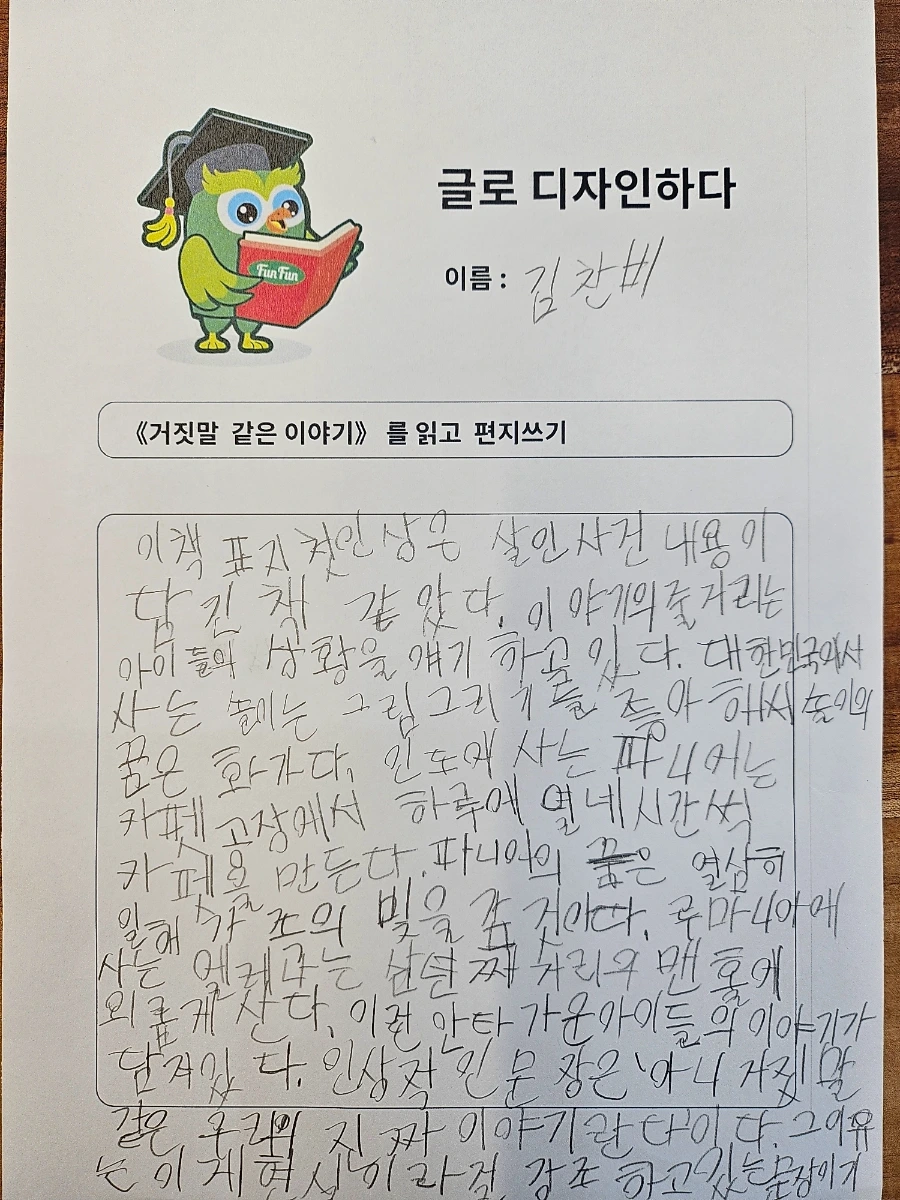 FunFun
글로 디자인하다
이름 : 김찬비
《거짓말 같은 이야기》 를 읽고 편지쓰기
이책 표지 첫인상은 살인사건 내용이
담긴 책 같았다. 이야기의줄거리는
아이들의 상황을 얘기 하고있다. 대한민국에서
사는 솔이는 그림그리기를 좋아해서 솔이의
꿈은 화가다. 인도에 사는 파니어는
카페 공장에서 하루에 열네시간씩
카펫을 만든다. 파니아의 꿈은 열심히
일해 가족의 빚을 갚 것이다. 루마니아에
사는 엘레나는 삼년째 거리의 맨홀에
외롭게 산다. 이런 안타가운아이들의이야기가
담겨있다. 인상적인 문장은 '아니 거짓말
같은 우리의 진짜 이야기란다'이다. 그이유
는 이게현실이라걸 강조하고있는문장이기